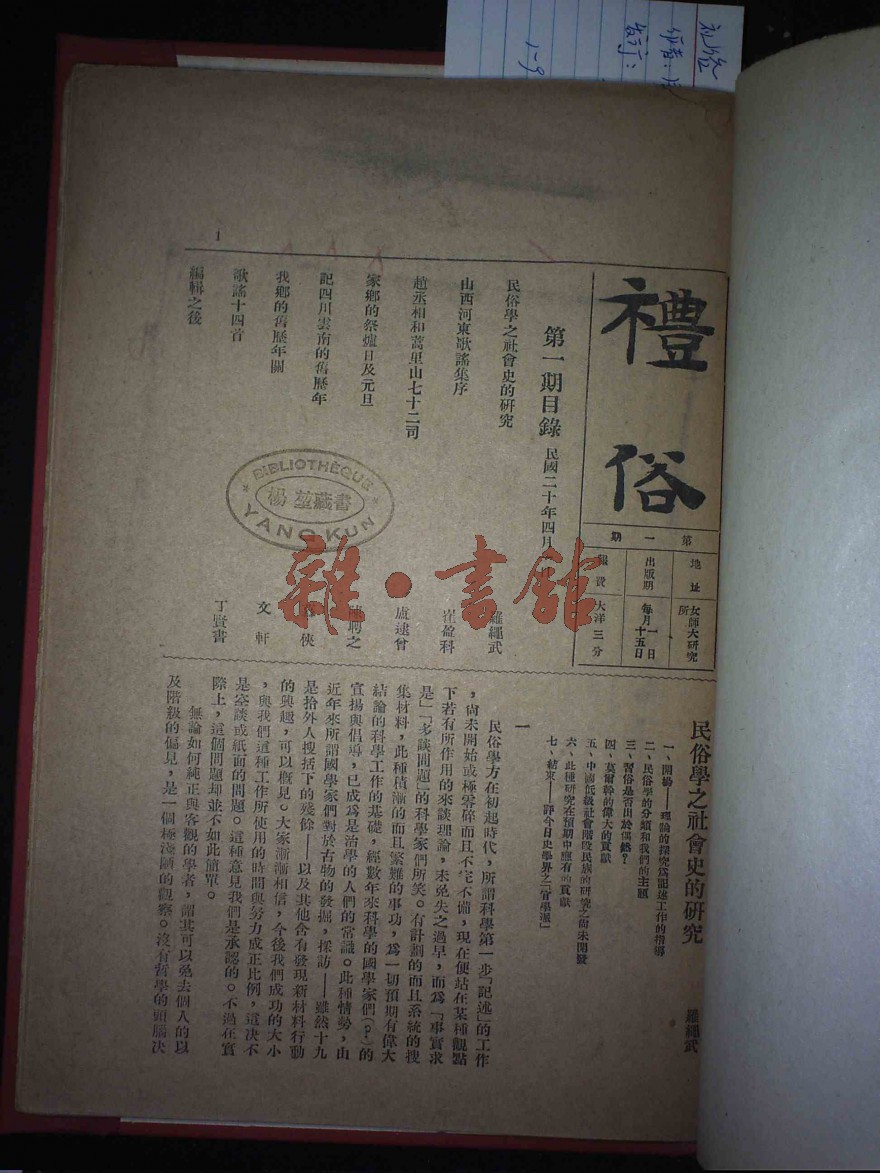 禮俗
第一期
地址 女師大研究所
出版期 每月一日十五日
報資 大洋三分
第一期目錄 民國二十年四月
民俗學之社會史的研究 羅繩武
山西河東歌謠集序 崔盈科
趙丞相和蒿里山七十二司 盧逮曾
家鄉的祭爐日及元旦 陳聘之
記四川雲南的舊曆年 俠
我鄉的舊歷年關 文軒
歌謠十四首 丁賡書
編輯之後
1
BIBLIOTHÈQUE
楊堃藏書
YANG KUN
雜·書館
民俗學之社會史的研究 羅繩武
一、開場——理論的探究為記述工作的指導
二、民俗學的分類和我們的主題
三、習俗是否出於偶然?
四、莫爾幹的偉大的貢獻
五、中國低級社會階段民族的研究之尚未開發
六、此種研究在預期中應有的貢獻
七、結束——評今日史學界之「官學遜」
一
民俗學方在初起時代,所謂科學第一步「記述」的工作
,尚未開始或極零碎而且不完不備,現在便站在某種觀點
下若有所作用的來談理論,未免失之過早,而為「事實求
是」「多談問題」的科學家們所笑。有計劃的而且系統的搜
集材料,此種積漸的而且繁難的事功,為一切預期有偉大
結論的科學工作的基礎,經數年來科學的國學家們(?)的
宣揚與倡導,已成為是治學的人們的常識。此種情勢,由
近年來所謂國學家們對於古物的發掘,採訪——雖然十九
是拾外人搜括下的殘餘——以及其他含有發現新材料行動
的興趣,可以概見。大家漸漸相信,今後我們成功的大小
,與我們這種工作所使用的時間與努力成正比例,這決不
是空談或紙面的問題。這種意見我們是承認的。不過在實
際上,這個問題却並不如此簡單。
無論如何純正與客觀的學者,謂其可以免去個人的以
及階級的偏見,是一個極淺陋的觀察。沒有哲學的頭腦決